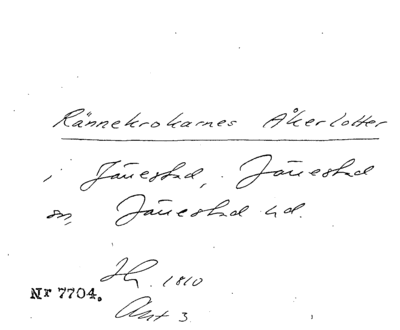 Rännekrokarnes Åkerlotter
i Järrestad, Järrestad
sn, Järrestad hd.
1810
Nr 7704.
Akt 3.